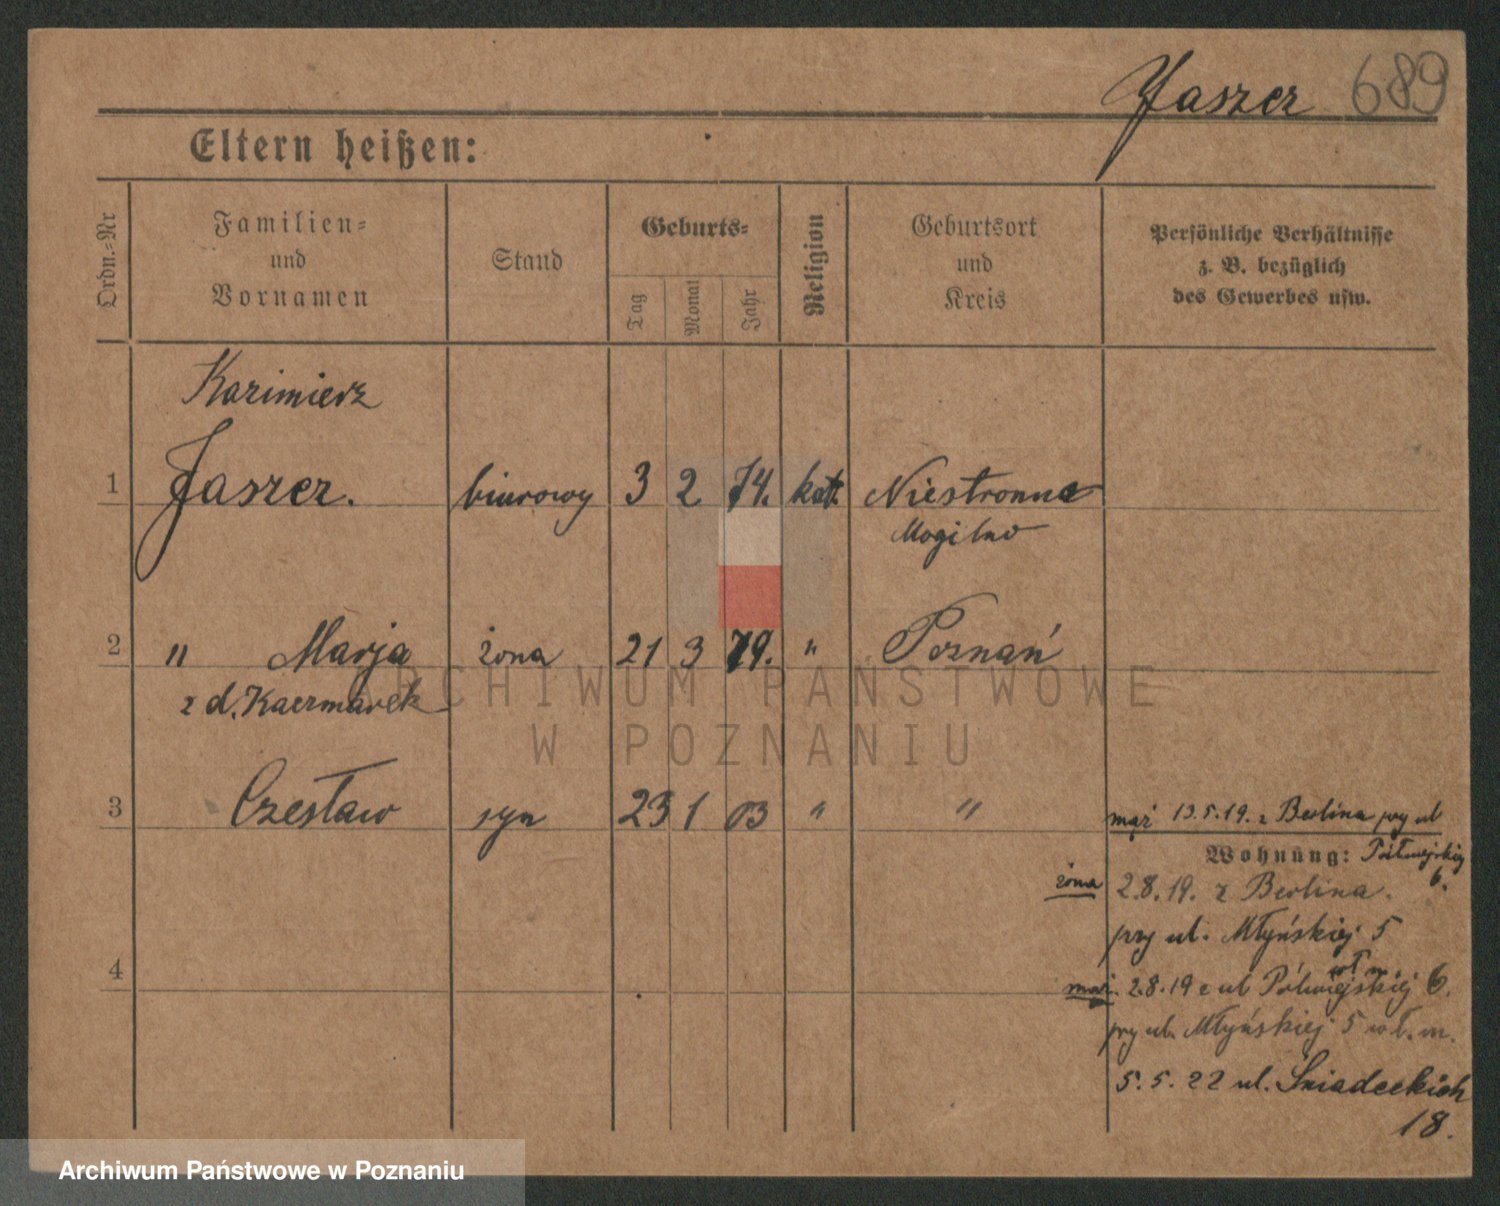 Jaszcz 689
Eltern heißen:
Ordn.=Nr
Familien=
und
Vornamen
Stand
Geburts=
Tag
Monat
Jahr
Religion
Geburtsort
und
Kreis
Persönliche Verhältnisse
z. B. bezüglich
des Gewerbes usw.
Kazimierz
1 Jaszcz. biurowy 3 2 74. kat. Niestronno
Mogilno
2 " Marja żona 21 3 79. " Poznań
z d. Kaczmarek
3 Czesław syn 23 1 03 " "
mąż 13.5.19. z Berlina przy ul
Wohnung: Półwiejskiej
6.
żona 2.8.19. z Berlina.
przy ul. Młyńskiej 5
4
wł m
mąż. 2.8.19 z ul Półwiejskiej 6.
przy ul. Młyńskiej 5 wł. m.
5. 5. 22 ul. Śniadeckich
18.
ARCHIWUM PAŃSTWOWE
W POZNANIU
Archiwum Państwowe w Poznaniu